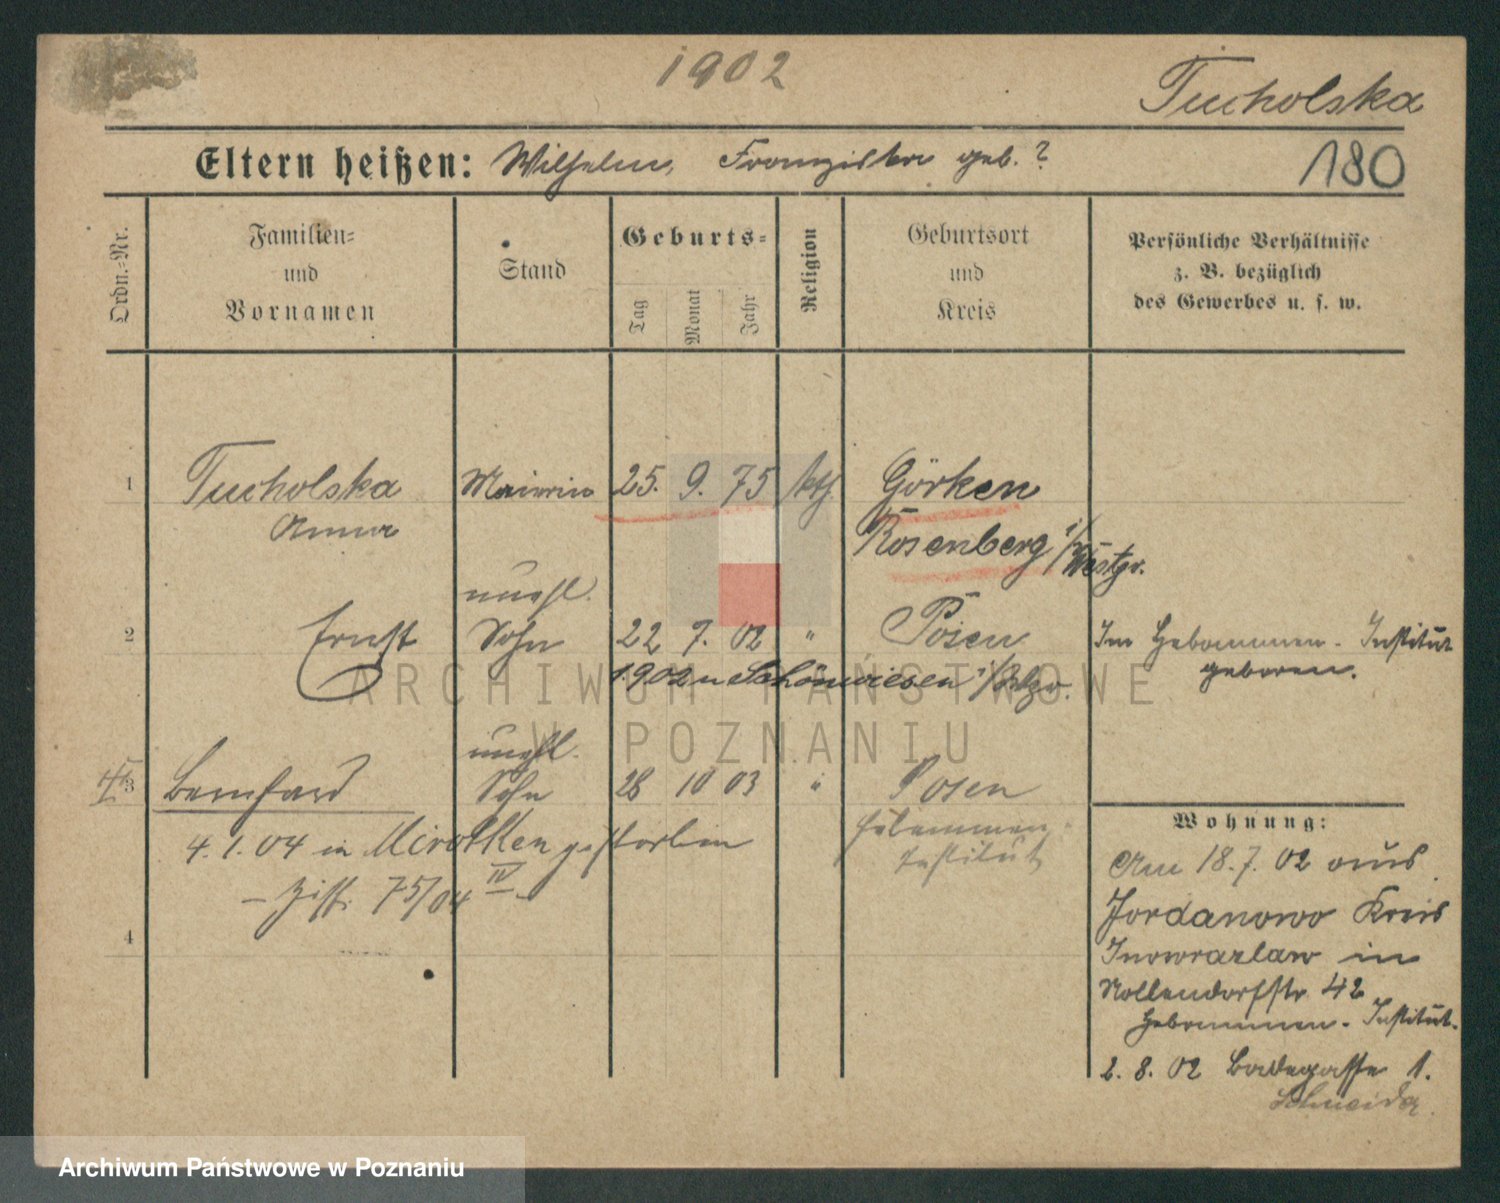 1902
Tucholska
Eltern heißen: Wilhelm, Franziska geb. ?
180
Ordn.-Nr.
Familien-
und
Vornamen
Stand
Geburts-
Tag
Monat
Jahr
Religion
Geburtsort
und
Kreis
Persönliche Verhältnisse
z. B. bezüglich
des Gewerbes u. s. w.
1 Tucholska 25. 9. 75 kth. Görken
Anna
Rosenberg i/Westpr.
unehl.
2 Ernst Sohn 22 7. 02 " Posen Im Hebammen-Institut
geboren.
1902 Schönwiesen i/Wpr.
unehl.
3 Bernhard Sohn 28 10 03 " Posen
Hebammen-
Institut
4. 1. 04 in Mirotken gestorben
75/04 IV
4
Wohnung:
Am 18. 7. 02 aus
Jordanowo Kreis
Inowrazlaw in
Nollendorfstr. 42
Hebammen-Institut.
2. 8. 02 Badegasse 1.
Schneider
ARCHIWUM PAŃSTWOWE
W POZNANIU
Archiwum Państwowe w Poznaniu